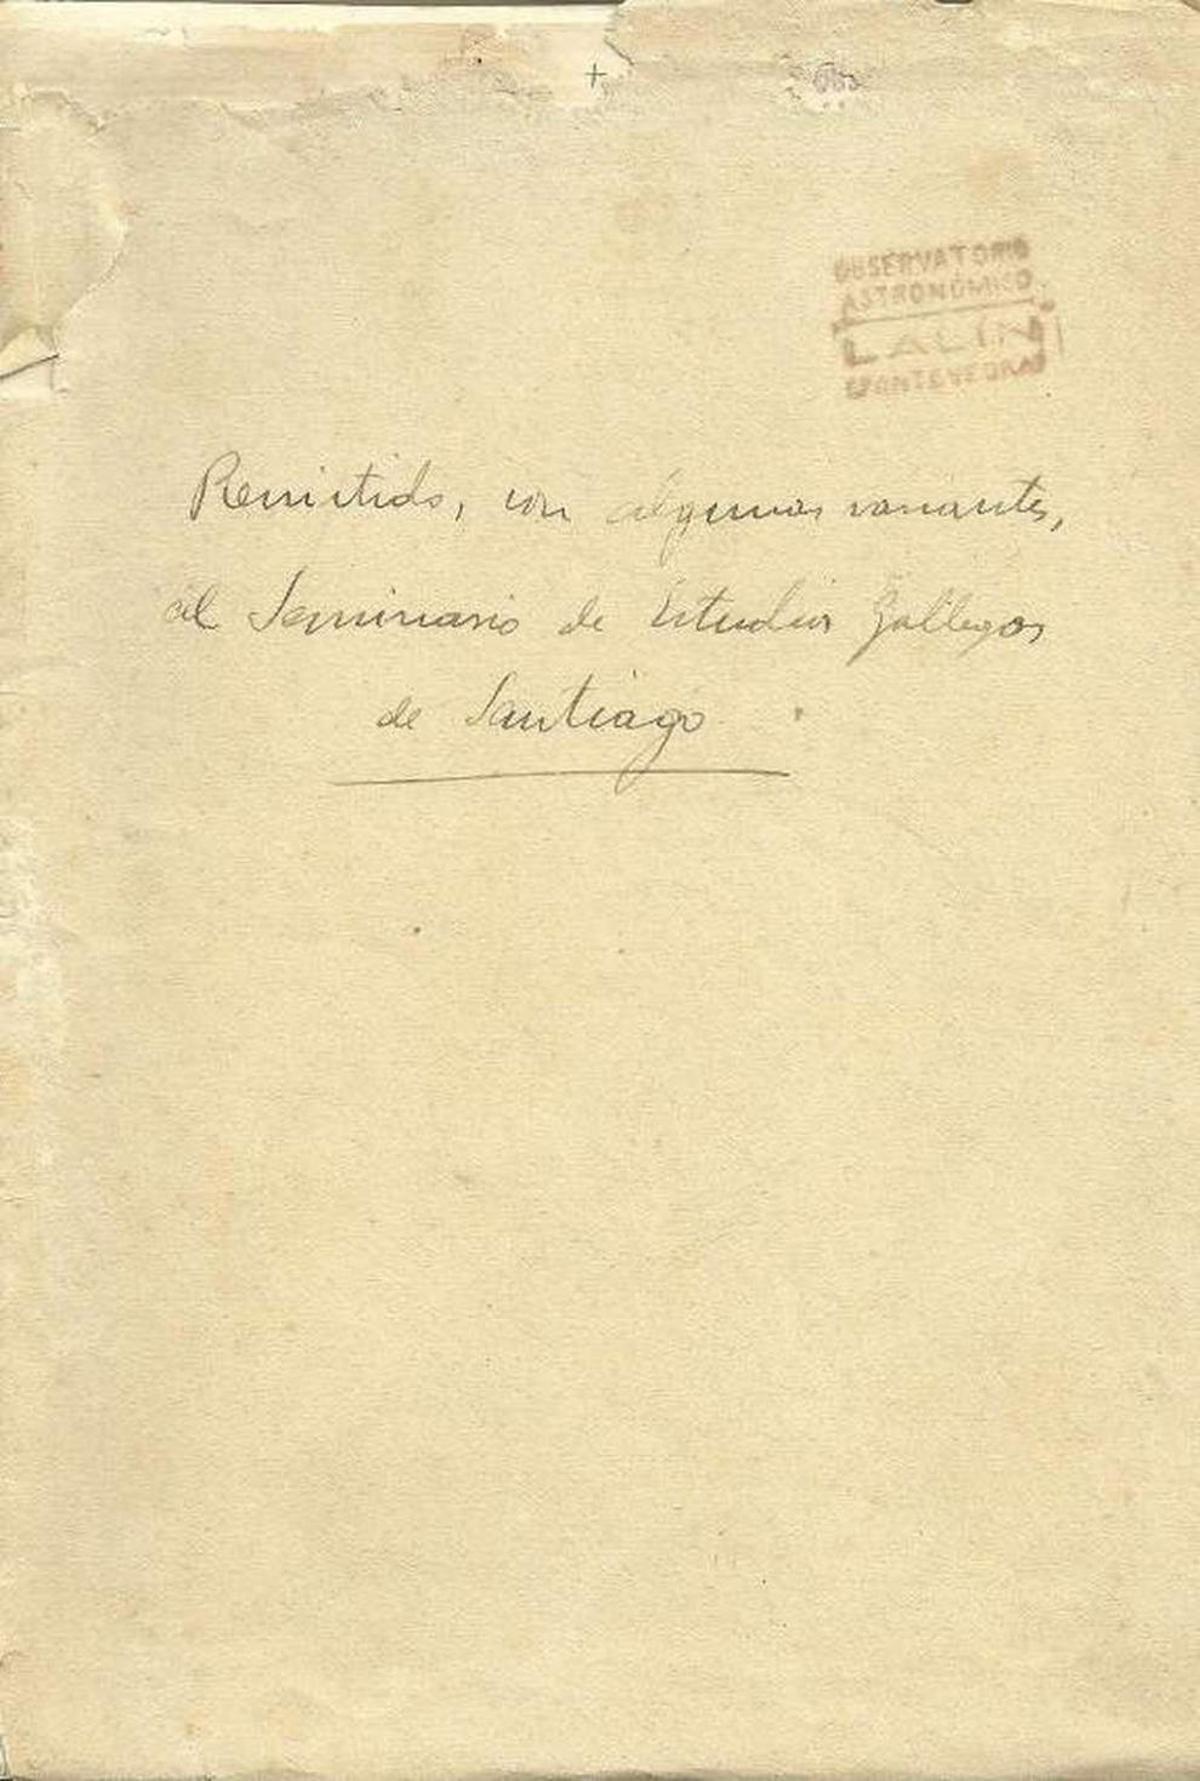 +
OBSERVATORIO
ASTRONÓMICO
LALÍN
(PONTEVEDRA)
Remitido, con algunas variantes,
al Seminario de Estudios Gallegos
de Santiago